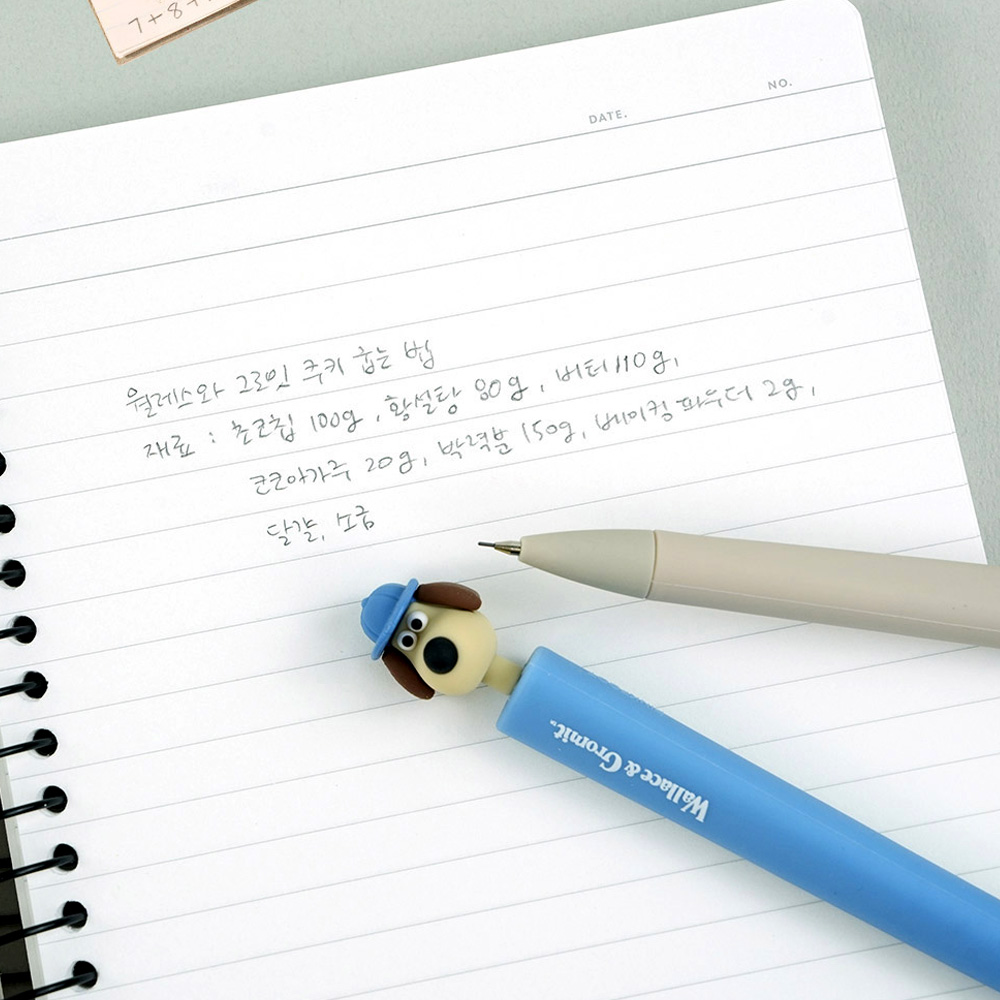 7+8+
NO.
DATE.
월레스와 그로밋 쿠키 굽는 법
재료 : 초코칩 100g, 황설탕 80g, 버터 110g,
코코아가루 20g, 박력분 150g, 베이킹 파우더 2g,
달걀, 소금
Wallace & Gromit